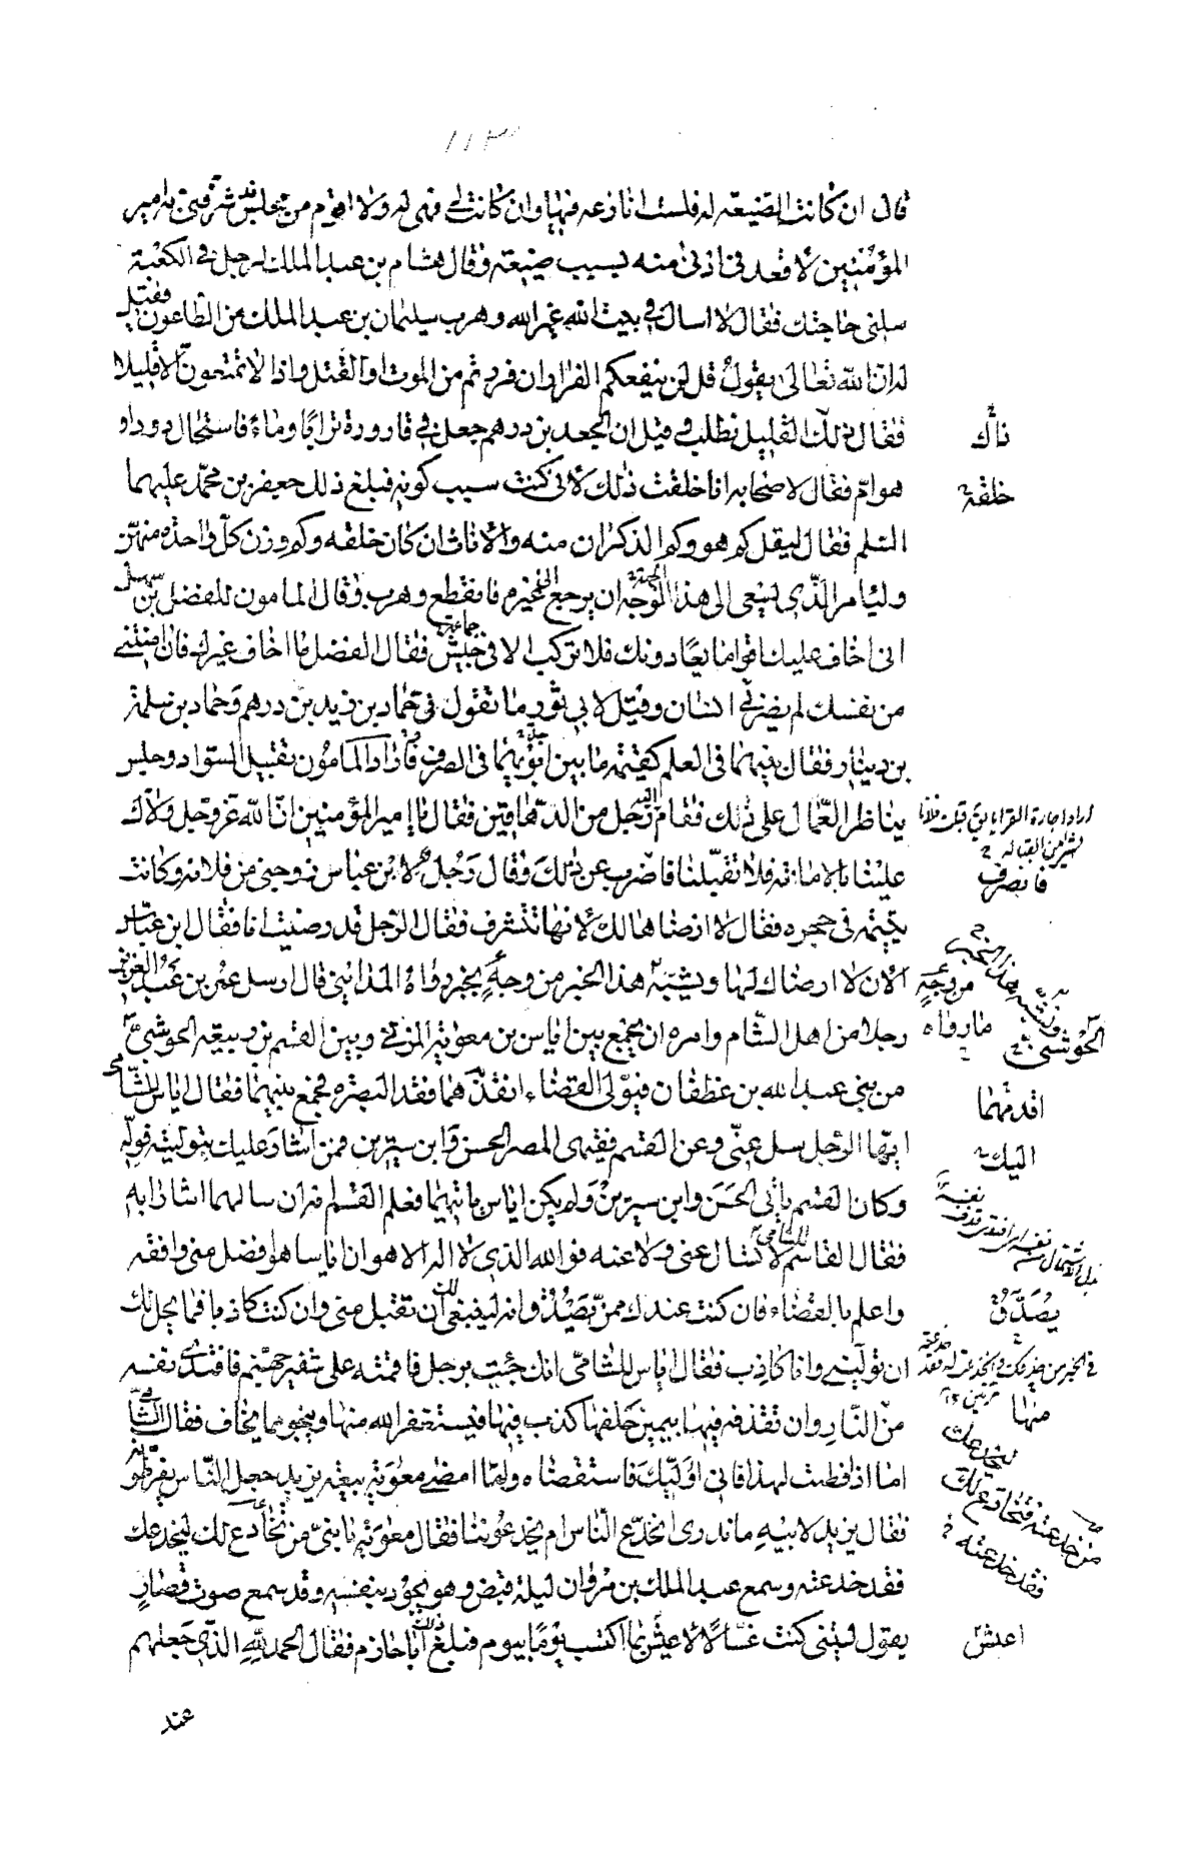 ١١٣
قال ان كانت الضيعة له فلست انازعه فيها وان كانت لى فهى له ولا اقوم من مجلس شرفنى به امير
المؤمنين لاقعد فى ادنى منه بسبب ضيعة وقال هشام بن عبد الملك لرجل فى الكعبة
سلنى حاجتك فقال لا اسال فى بيت الله غير الله وهرب سليمان بن عبد الملك من الطاعون فقيل
له ان الله تعالى يقول قل لن ينفعكم الفرار ان فررتم من الموت او القتل واذا لا تمتعون الا قليلا
فقال ذلك القليل نطلب وقيل ان الجعد بن درهم جعل فى قارورة ترابا وماء فاستحال دودا و
هوام فقال لاصحابه انا خلقت ذلك لانى كنت سبب كونه فبلغ ذلك جعفر بن محمد عليهما
السلم فقال ليقل كم هو وكم الذكران منه والاناث ان كان خلقه وكم وزن كل واحدة منهن
وليامر الذى يسعى الى هذا الوجه ان يرجع الى غيره فانقطع وهرب وقال المامون للفضل بن سهل
انى اخاف عليك اقواما يعادونك فلا تركب الا فى جيش فقال الفضل ما اخاف غيرك فان امنتنى
من نفسك لم يضرنى انسان وقيل لابى ثور ما تقول فى حماد بن زيد بن درهم وحماد بن سلمة
بن دينار فقال بينهما فى العلم كقيمة ما بين ابويهما فى الصرف واراد المامون تقبيل السواد وجلس
يناظر العمال على ذلك فقام رجل من الدهاقين فقال يا امير المؤمنين ان الله عز وجل ولاك
علينا بالامانة فلا تقبلنا فاضرب عن ذلك وقال رجل لابن عباس زوجنى من فلانة وكانت
يتيمة فى حجره فقال لا ارضاها لك لانها تتشرف فقال الرجل قد رضيت انا فقال ابن عباس
الان لا ارضاك لها ويشبه هذا الخبر من وجه خبر رواه المداينى قال ارسل عمر بن عبد العزيز
رجلا من اهل الشام وامره ان يجمع بين اياس بن معوية المزنى وبين القسم بن ربيعة الحوشى
من بنى عبد الله بن غطفان فيولى القضاء انفذهما فقد البصرة فجمع بينهما فقال اياس للشامى
ايها الرجل سل عنى وعن القسم فقيهى المصر الحسن وابن سيرين فمن اشارا عليك بتوليته فوله
وكان القسم ياتى الحسن وابن سيرين ولم يكن اياس ياتيهما فعلم القسم انه ان سالهما اشارا به
فقال القاسم للشامى لا تسال عنى ولا عنه فوالله الذى لا اله الا هو ان اياسا هو افضل منى وافقه
واعلم بالقضاء فان كنت عندك ممن يصدق وانه لينبغى لك ان تقبل منى وان كنت كاذبا فما يحل لك
ان تولينى وانا كاذب فقال اياس للشامى انك جئت برجل فاقمته على شفير جهنم فافتدى نفسه
من النار وان تقذفه فيها بيمين حلفها كذب فيها فيستغفر الله منها وينجو مما يخاف فقال الشامى
اما اذ فطنت لهذا فانى اوليك فاستقضاه ولما امضى معوية بيعة يزيد جعل الناس يقرظونه
فقال يزيد لابيه ما ندرى انخدع الناس ام يخدعوننا فقال معوية يا بنى من تخادع لك ليخدعك
فقد خدعته وسمع عبد الملك بن مروان ليلة قبض وهو يجود بنفسه وقد سمع صوت قصار
يقول ليتنى كنت غسالا لا اعيش الا بما اكتسب يوما بيوم فبلغ ذلك ابا حازم فقال الحمد لله الذى جعلهم
ذاك
خلقه
فانصرف
من وجه
ما رواه
الحوشى
اقدمهما
اليك
يصدق
منها
ليخدعك
من خدعته فتخادع لك
فقد خدعته
اعيش
عند